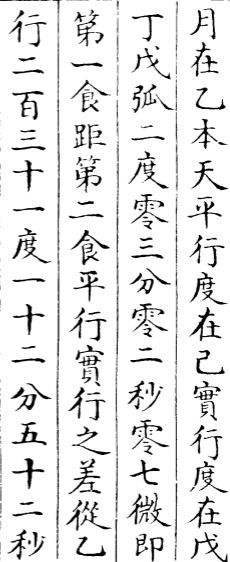 月在乙本天平行度在己實行度在戊
丁戊弧二度零三分零二秒零七微即
第一食距第二食平行實行之差從乙
行二百三十一度一十二分五十二秒